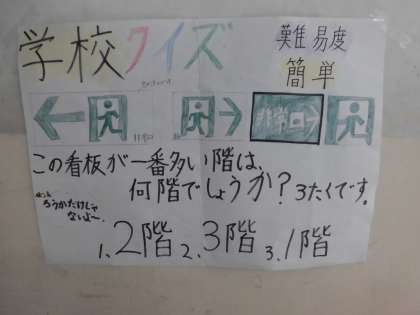 学校クイズ
難易度
簡単
非常口→
この看板が一番多い階は、
何階でしょうか？3たくです。
ろうかだけじゃ
ないよ〜。
1.2階 2.3階 3.1階